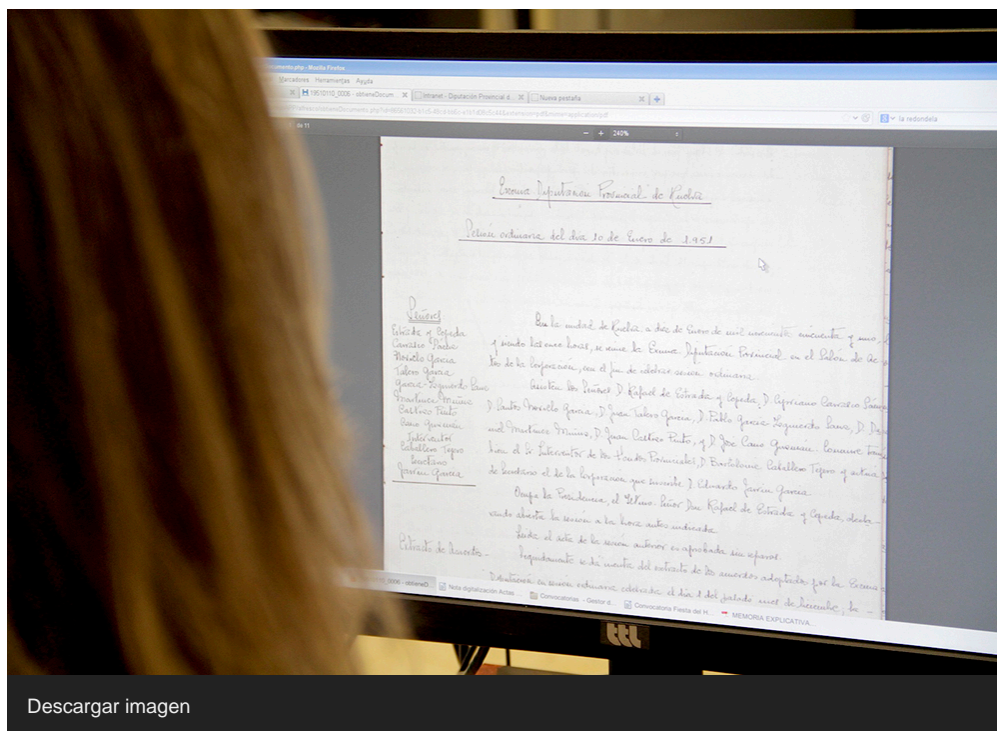 documento.php - Mozilla Firefox
Marcadores Herramientas Ayuda
19510110_0006 - obtieneDocum...
Intranet - Diputación Provincial d...
Nueva pestaña
la redondela
de 11
240%
Excma Diputacion Provincial de Huelva
Sesion ordinaria del dia 10 de Enero de 1.951
Señores
Estrada y Cepeda
Carrasco
Garcia
Talero Garcia
Garcia-Izquierdo
Martinez
Castizo Pinto
Cano Guzman
Interventor
Caballero Tejero
Secretario
Garcia
En la ciudad de Huelva a diez de Enero de mil novecientos cincuenta y uno,
y siendo las once horas, se reune la Excma. Diputacion Provincial en el Salon de Ac-
tos de la Corporacion, con el fin de celebrar sesion ordinaria.
Asisten los Señores D. Rafael de Estrada y Cepeda, D. Cipriano Carrasco
D. Santos Garcia, D. Juan Talero Garcia, D. Pablo Garcia Izquierdo
Martinez D. Juan Castizo Pinto, y D. Jose Cano Guzman. Concurre tam-
bien el Sr. Interventor de los Fondos Provinciales, D. Bartolome Caballero Tejero y actua
de Secretario el de la Corporacion que suscribe D. Eduardo Garcia.
Ocupa la Presidencia, el Iltmo. Señor Don Rafael de Estrada y Cepeda, decla-
rando abierta la sesion a la hora antes indicada.
Leida el acta de la sesion anterior es aprobada sin reparos.
Extracto de Acuerdos.-
Seguidamente se da cuenta del extracto de los acuerdos adoptados por la Excma
Diputacion en sesion ordinaria celebrada el dia 1 del pasado mes de Diciembre, la -
_0006 - obtieneD...
Nota digitalización Actas ...
Convocatorias - Gestor d...
Convocatoria Fiesta del H...
MEMORIA EXPLICATIVA...
ttl
Descargar imagen